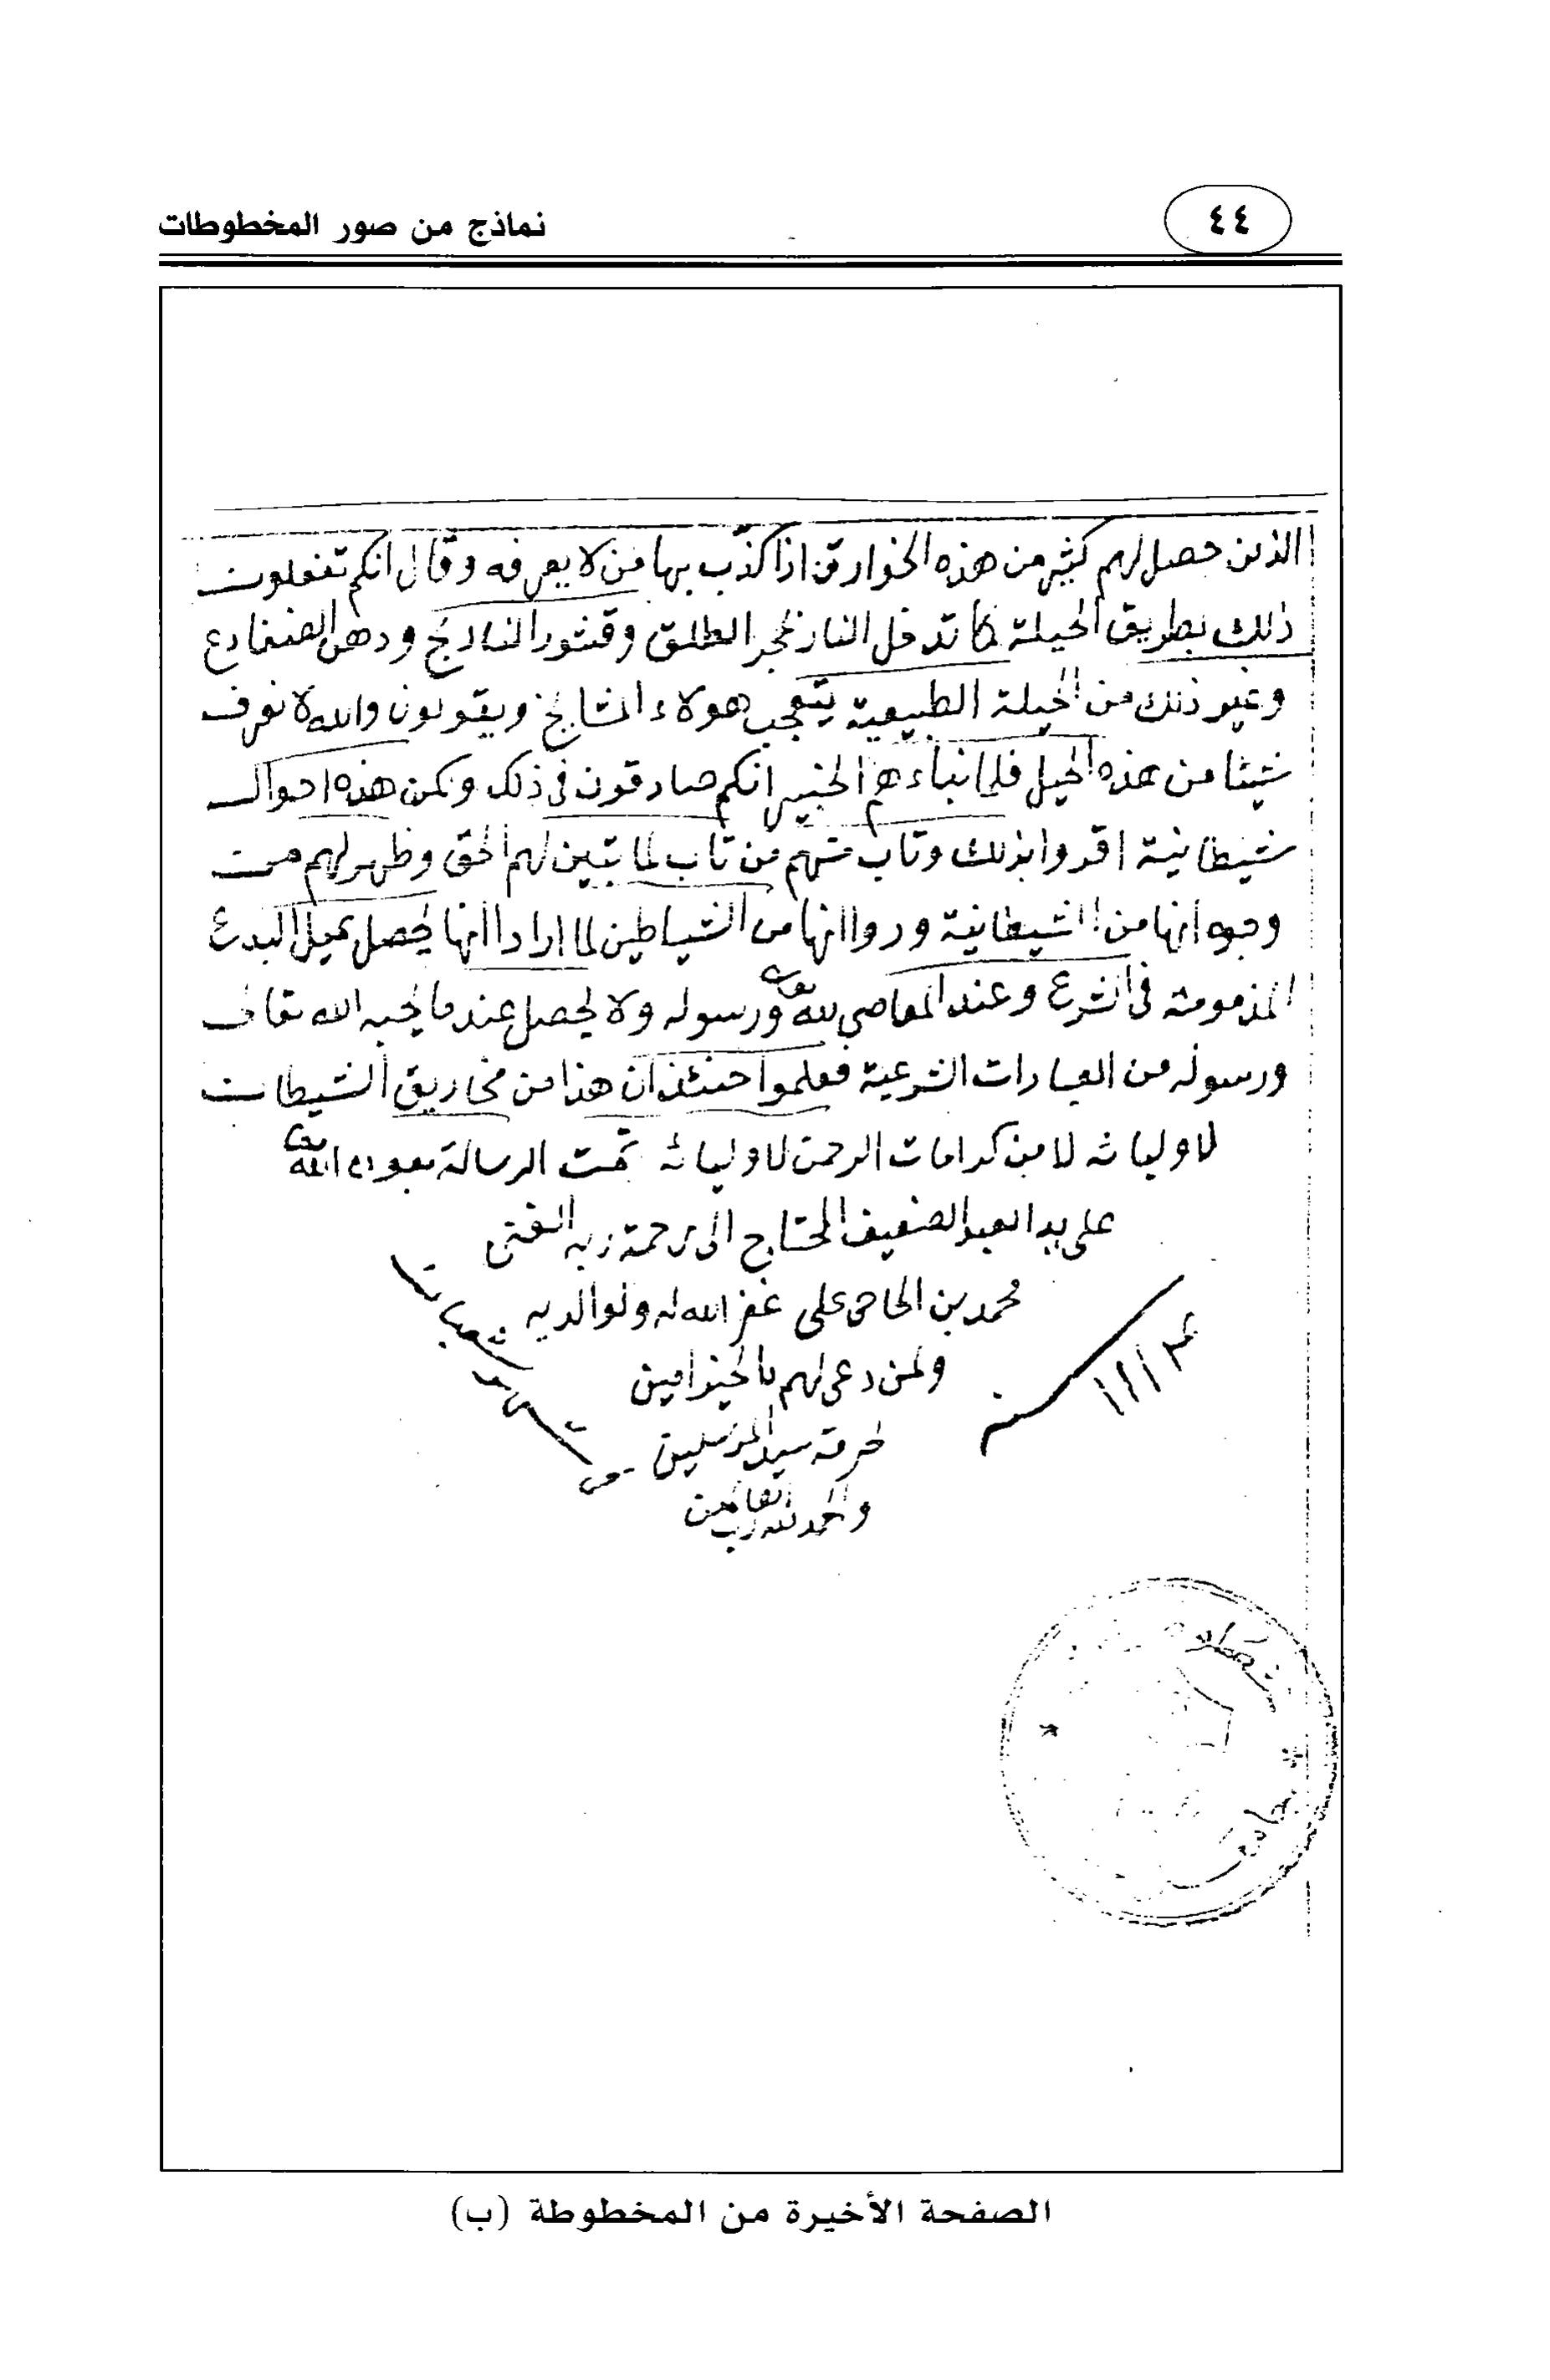 ٤٤
نماذج من صور المخطوطات
الذين حصل لهم كثير من هذه الخوارق اذا كذّب بها من لا يعرفه وقال انكم تفعلون
ذلك بطريق الحيلة كما تدخل النار بحجر الطلق وقشور النارنج ودهن الضفادع
وغير ذلك من الحيلة الطبيعية يتعجب هولاء المشايخ ويقولون والله لا نعرف
شيئا من هذه الحيل فلما انباءهم الخبير انكم صادقون في ذلك ولكن هذه احوال
شيطانية اقروا بذلك وتاب منهم من تاب لما تبين لهم الحق وظهر لهم من
وجوه انها من الشيطانية ورواانها من الشياطين لما ارادا انها يحصل بميل البدع
المذمومة في الشرع وعند المعاصي لله تعالى ورسوله ولا يحصل عند ما يحبه الله تعالى
ورسوله من العبادات الشرعية فعلموا حينئذ ان هذا من مخاريق الشيطان
لاوليائه لا من كرامات الرحمن لاوليائه تمت الرسالة بعون الله تعالى
على يد العبد الضعيف المحتاج الى رحمة ربه الغني
محمد بن الحاجي علي غفر الله له ولوالديه
ولمن دعى لهم بالخير امين
بحرمة سيد المرسلين
والحمد لله رب العالمين
الصفحة الأخيرة من المخطوطة (ب)